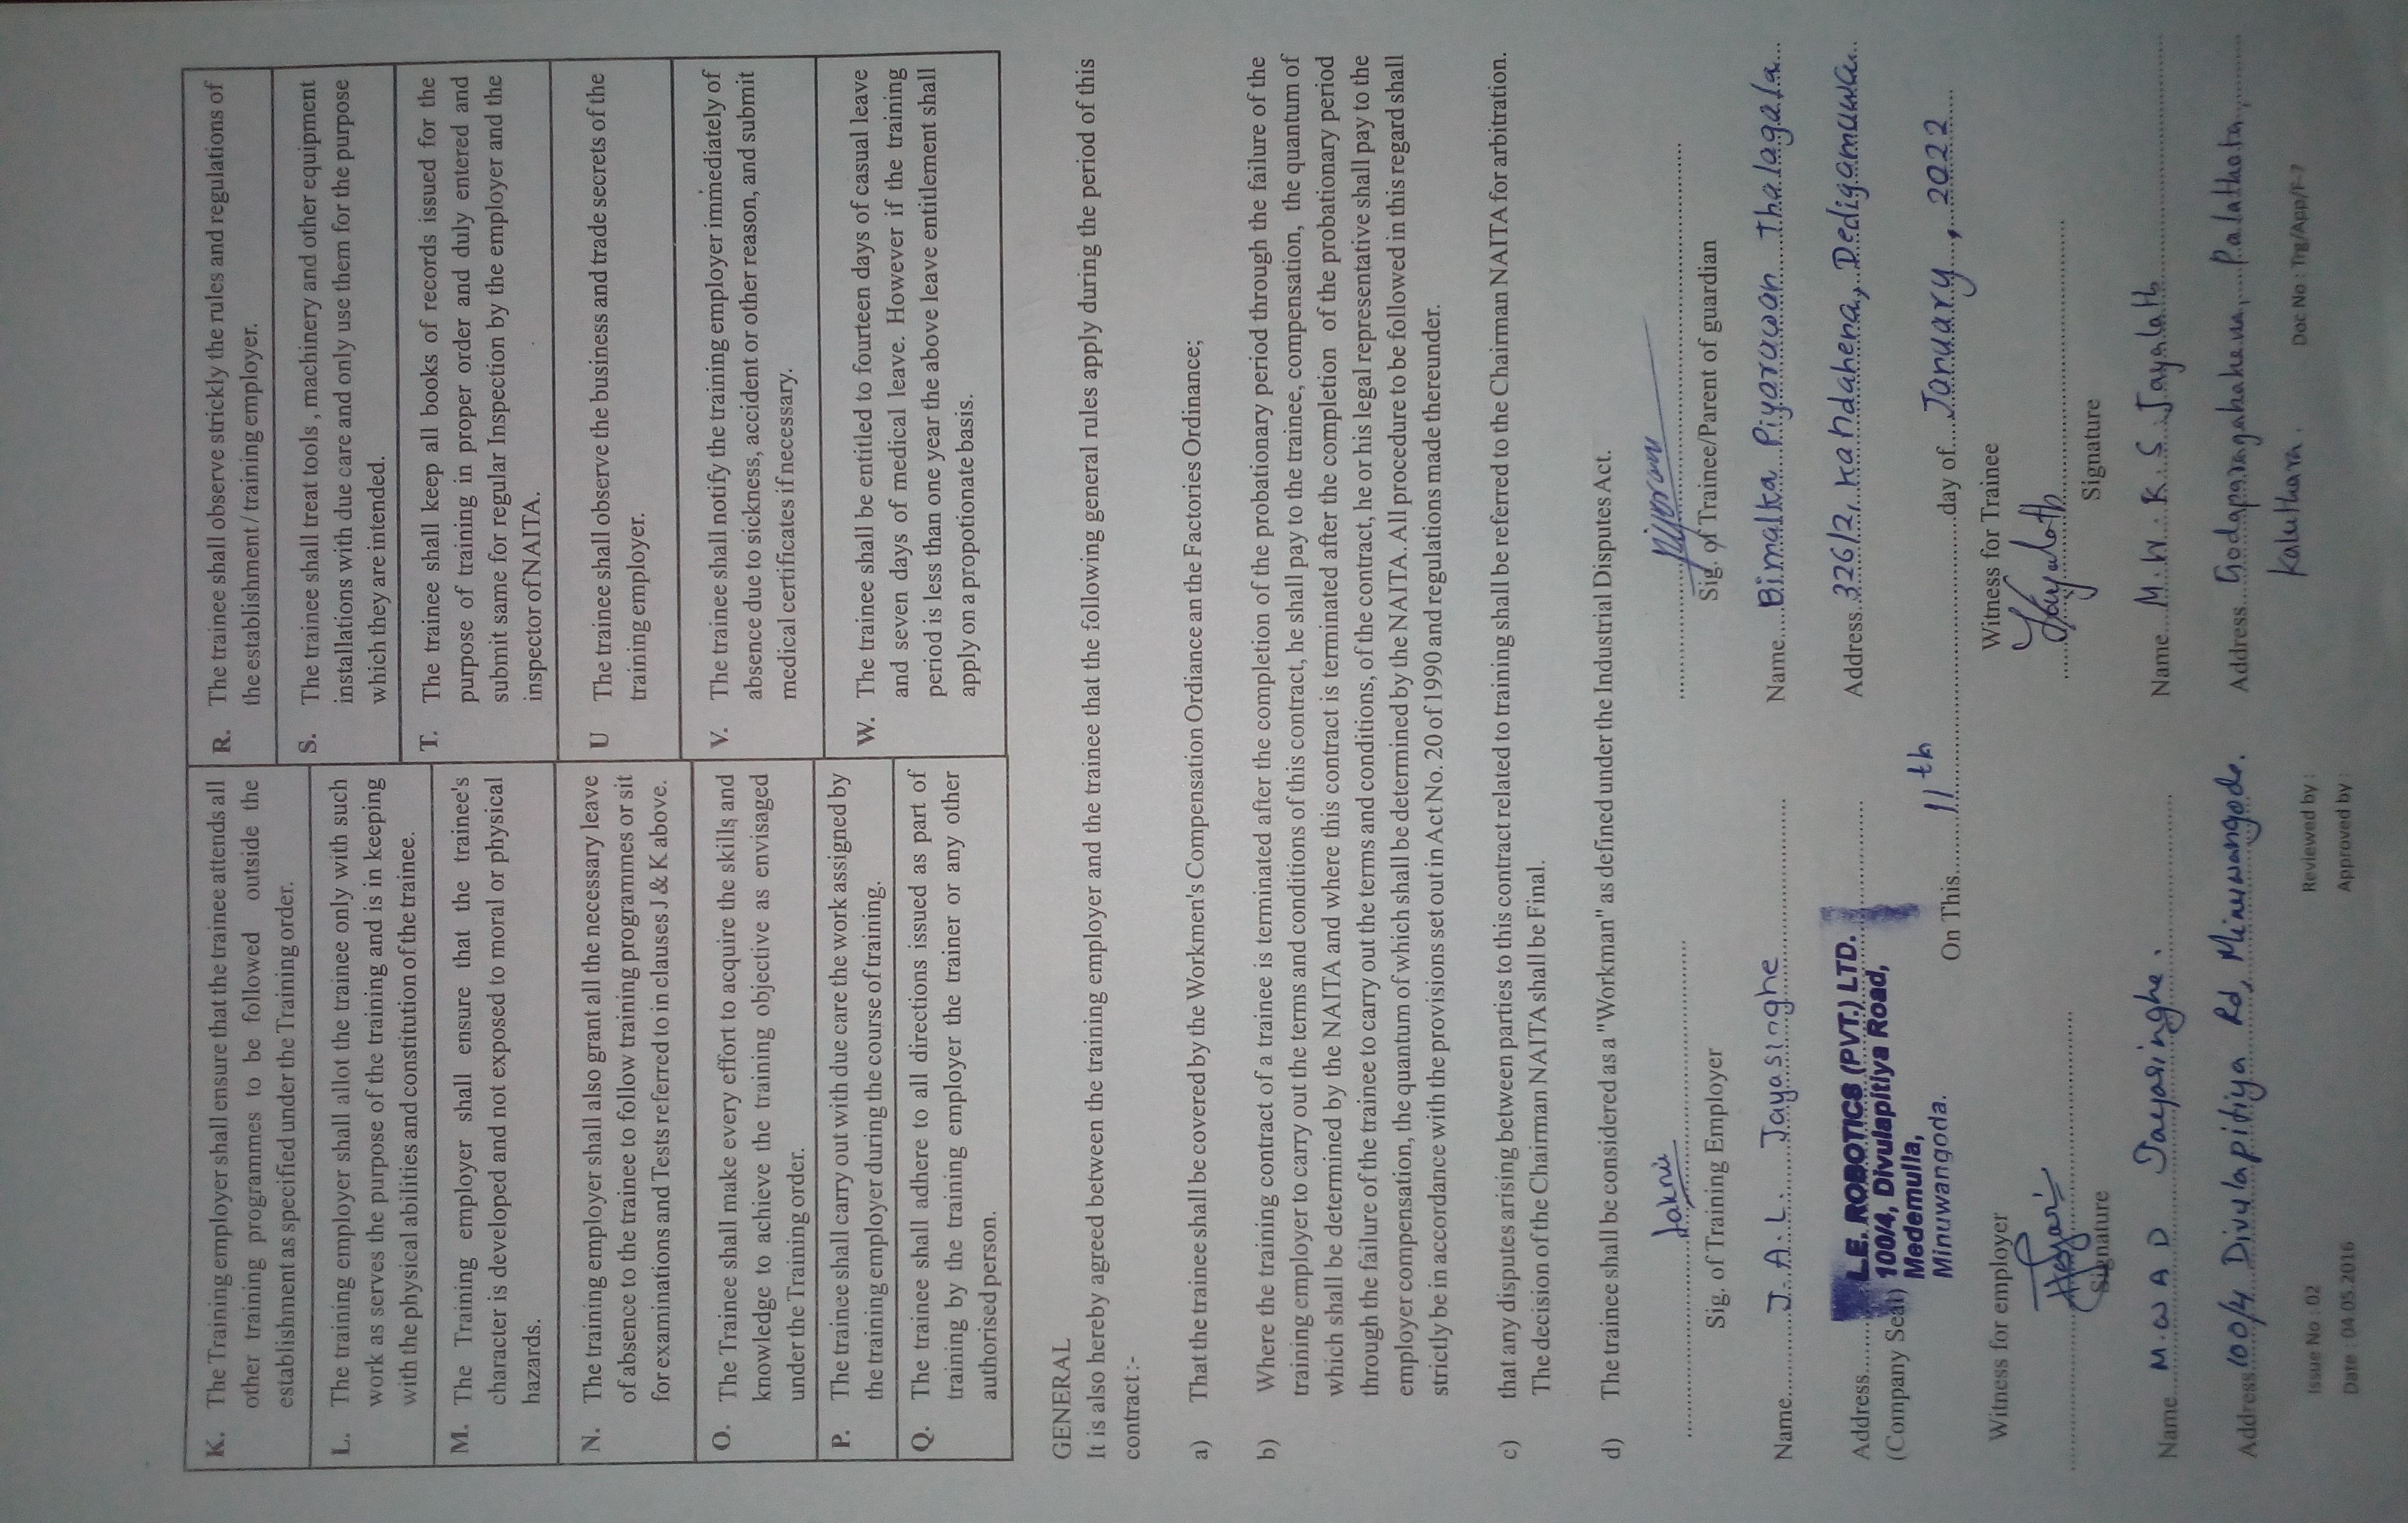 K. The Training employer shall ensure that the trainee attends all
other training programmes to be followed outside the
establishment as specified under the Training order.
L. The training employer shall allot the trainee only with such
work as serves the purpose of the training and is in keeping
with the physical abilities and constitution of the trainee.
M. The Training employer shall ensure that the trainee's
character is developed and not exposed to moral or physical
hazards.
N. The training employer shall also grant all the necessary leave
of absence to the trainee to follow training programmes or sit
for examinations and Tests referred to in clauses J & K above.
O. The Trainee shall make every effort to acquire the skills and
knowledge to achieve the training objective as envisaged
under the Training order.
P. The trainee shall carry out with due care the work assigned by
the training employer during the course of training.
Q. The trainee shall adhere to all directions issued as part of
training by the training employer the trainer or any other
authorised person.
R. The trainee shall observe strickly the rules and regulations of
the establishment / training employer.
S. The trainee shall treat tools , machinery and other equipment
installations with due care and only use them for the purpose
which they are intended.
T. The trainee shall keep all books of records issued for the
purpose of training in proper order and duly entered and
submit same for regular Inspection by the employer and the
inspector of NAITA.
U The trainee shall observe the business and trade secrets of the
training employer.
V. The trainee shall notify the training employer immediately of
absence due to sickness, accident or other reason, and submit
medical certificates if necessary.
W. The trainee shall be entitled to fourteen days of casual leave
and seven days of medical leave. However if the training
period is less than one year the above leave entitlement shall
apply on a propotionate basis.
GENERAL
It is also hereby agreed between the training employer and the trainee that the following general rules apply during the period of this
contract :-
a) That the trainee shall be covered by the Workmen's Compensation Ordiance an the Factories Ordinance;
b) Where the training contract of a trainee is terminated after the completion of the probationary period through the failure of the
training employer to carry out the terms and conditions of this contract, he shall pay to the trainee, compensation, the quantum of
which shall be determined by the NAITA and where this contract is terminated after the completion of the probationary period
through the failure of the trainee to carry out the terms and conditions, of the contract, he or his legal representative shall pay to the
employer compensation, the quantum of which shall be determined by the NAITA. All procedure to be followed in this regard shall
strictly be in accordance with the provisions set out in Act No. 20 of 1990 and regulations made thereunder.
c) that any disputes arising between parties to this contract related to training shall be referred to the Chairman NAITA for arbitration.
The decision of the Chairman NAITA shall be Final.
d) The trainee shall be considered as a "Workman" as defined under the Industrial Disputes Act.
Sig. of Training Employer
Sig. of Trainee/Parent of guardian
Name J. A. L. Jayasinghe
Name Bimalka Piyaruwan Thalagala
Address
(Company Seal)
L.E. ROBOTICS (PVT.) LTD.
100/4, Divulapitiya Road,
Medemulla,
Minuwangoda.
Address 326/2, Kandahena, Dedigamuwa.
On This 11th day of January, 2022
Witness for employer
Witness for Trainee
Jayalath
Signature
Signature
Name M.W A D Jayasinghe.
Name M. W. K. S. Jayalath
Address 100/4 Divulapitiya Rd, Minuwangoda.
Address Godaparagahahena, Palathota,
Kaluthara.
Issue No : 02
Reviewed by :
Doc No : Trg/App/F-7
Date : 04.05.2016
Approved by :